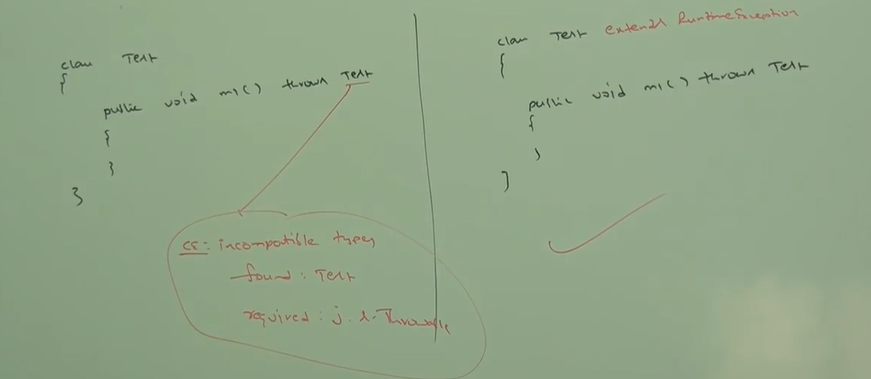 class Test
{
public void m1() throws Test
{
}
}
CE: incompatible types
found: Test
required: j.l.Throwable
class Test extends RuntimeException
{
public void m1() throws Test
{
}
}